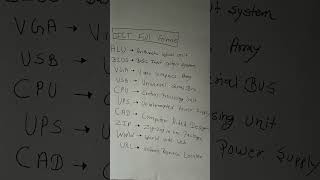 ICT Full Forms
ALU → Arithmetic Logic Unit
BIOS → Basic Input output System
VGA → Video Graphics Array
USB → Universal Serial Bus
CPU → Central Processing Unit
UPS → Uninterrupted Power Supply
CAD → Computer Aided Design
ZIP → Zig-Zag
WWW → World Wide Web
URL → Uniform Resource Locator
VGA →
USB →
CPU →
UPS →
CAD →
ut system
Array
BUS
sing Unit
Power Supply